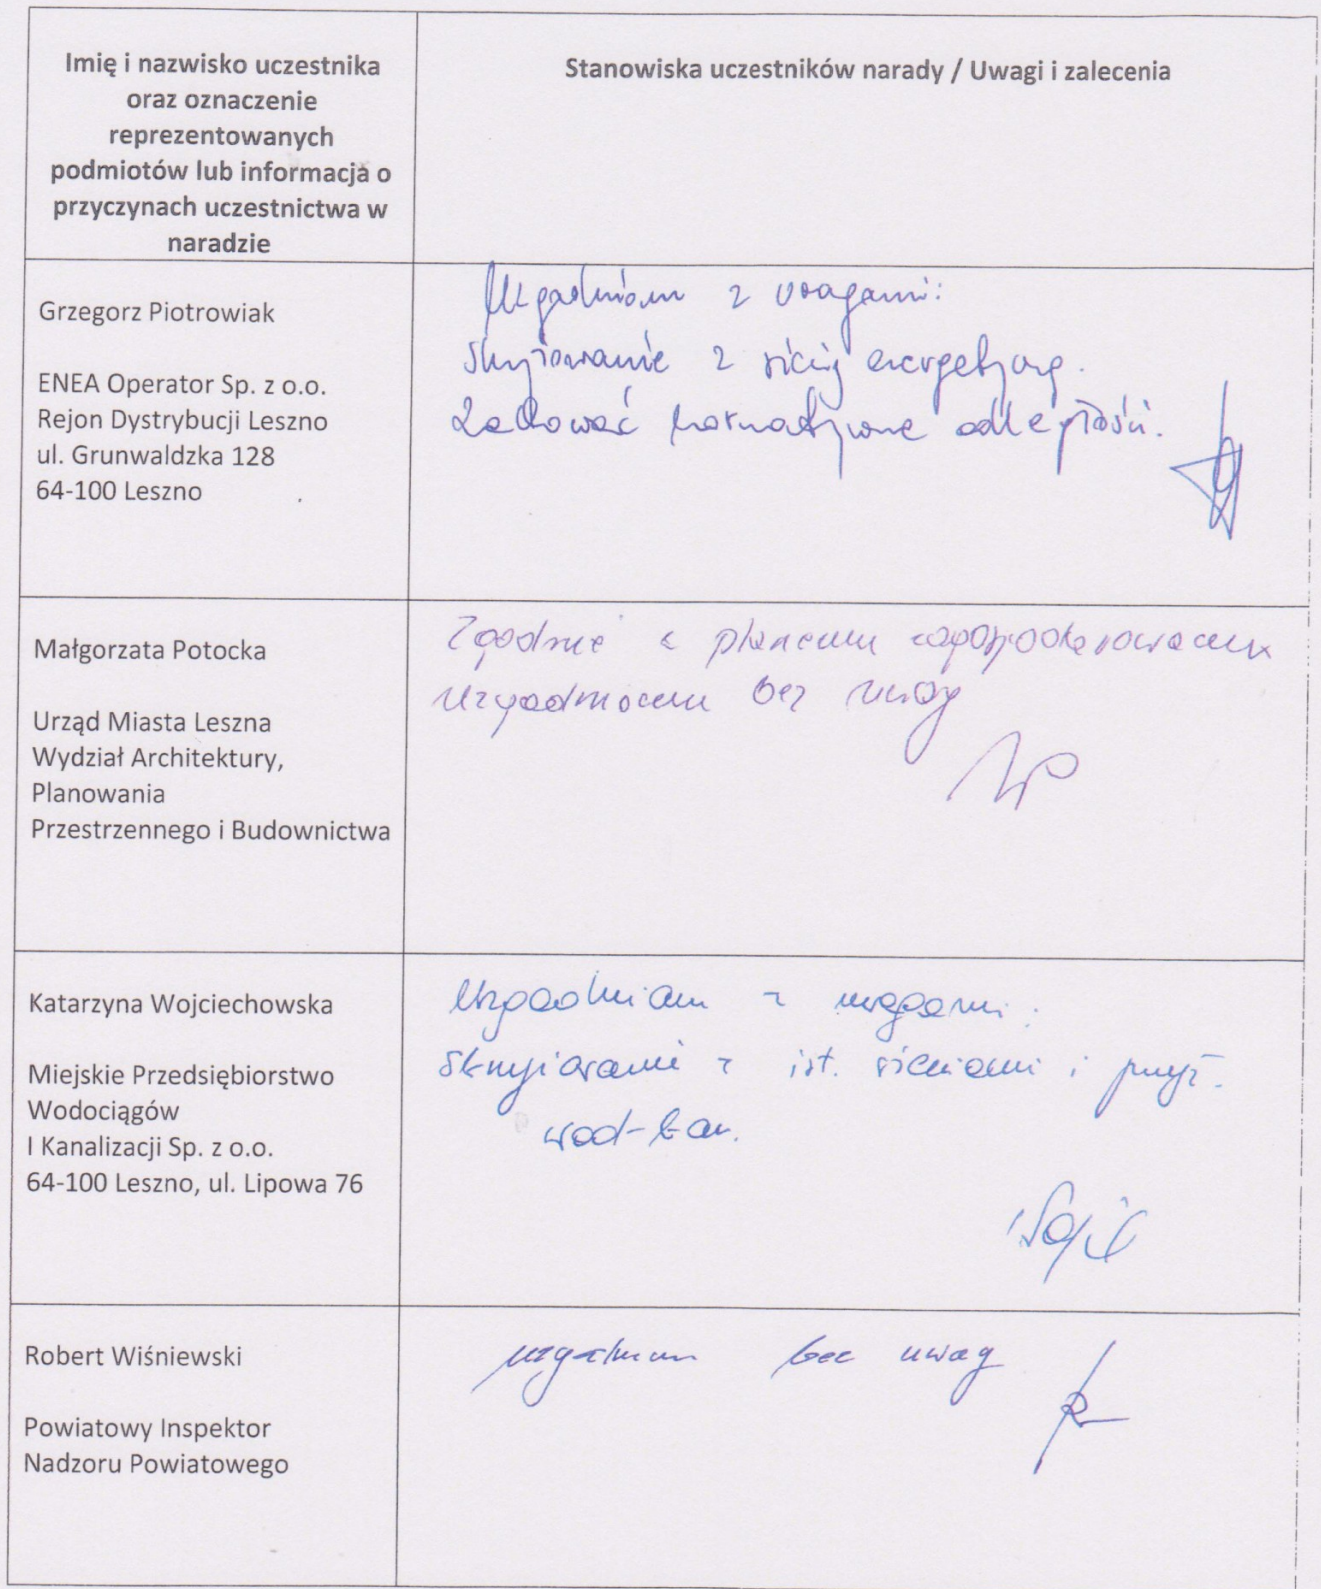 Imię i nazwisko uczestnika
oraz oznaczenie
reprezentowanych
podmiotów lub informacja o
przyczynach uczestnictwa w
naradzie
Stanowiska uczestników narady / Uwagi i zalecenia
Grzegorz Piotrowiak
ENEA Operator Sp. z o.o.
Rejon Dystrybucji Leszno
ul. Grunwaldzka 128
64-100 Leszno
Uzgadniam z uwagami:
Skrzyżowanie z siecią energetyczną.
Zachować normatywne odległości.
Małgorzata Potocka
Urząd Miasta Leszna
Wydział Architektury,
Planowania
Przestrzennego i Budownictwa
Zgodnie z planem zagospodarowania
uzgadniam bez uwag
Katarzyna Wojciechowska
Miejskie Przedsiębiorstwo
Wodociągów
I Kanalizacji Sp. z o.o.
64-100 Leszno, ul. Lipowa 76
Uzgadniam z uwagami:
skrzyżowanie z ist. sieciami i przył.
wod-kan.
Robert Wiśniewski
Powiatowy Inspektor
Nadzoru Powiatowego
uzgadniam bez uwag